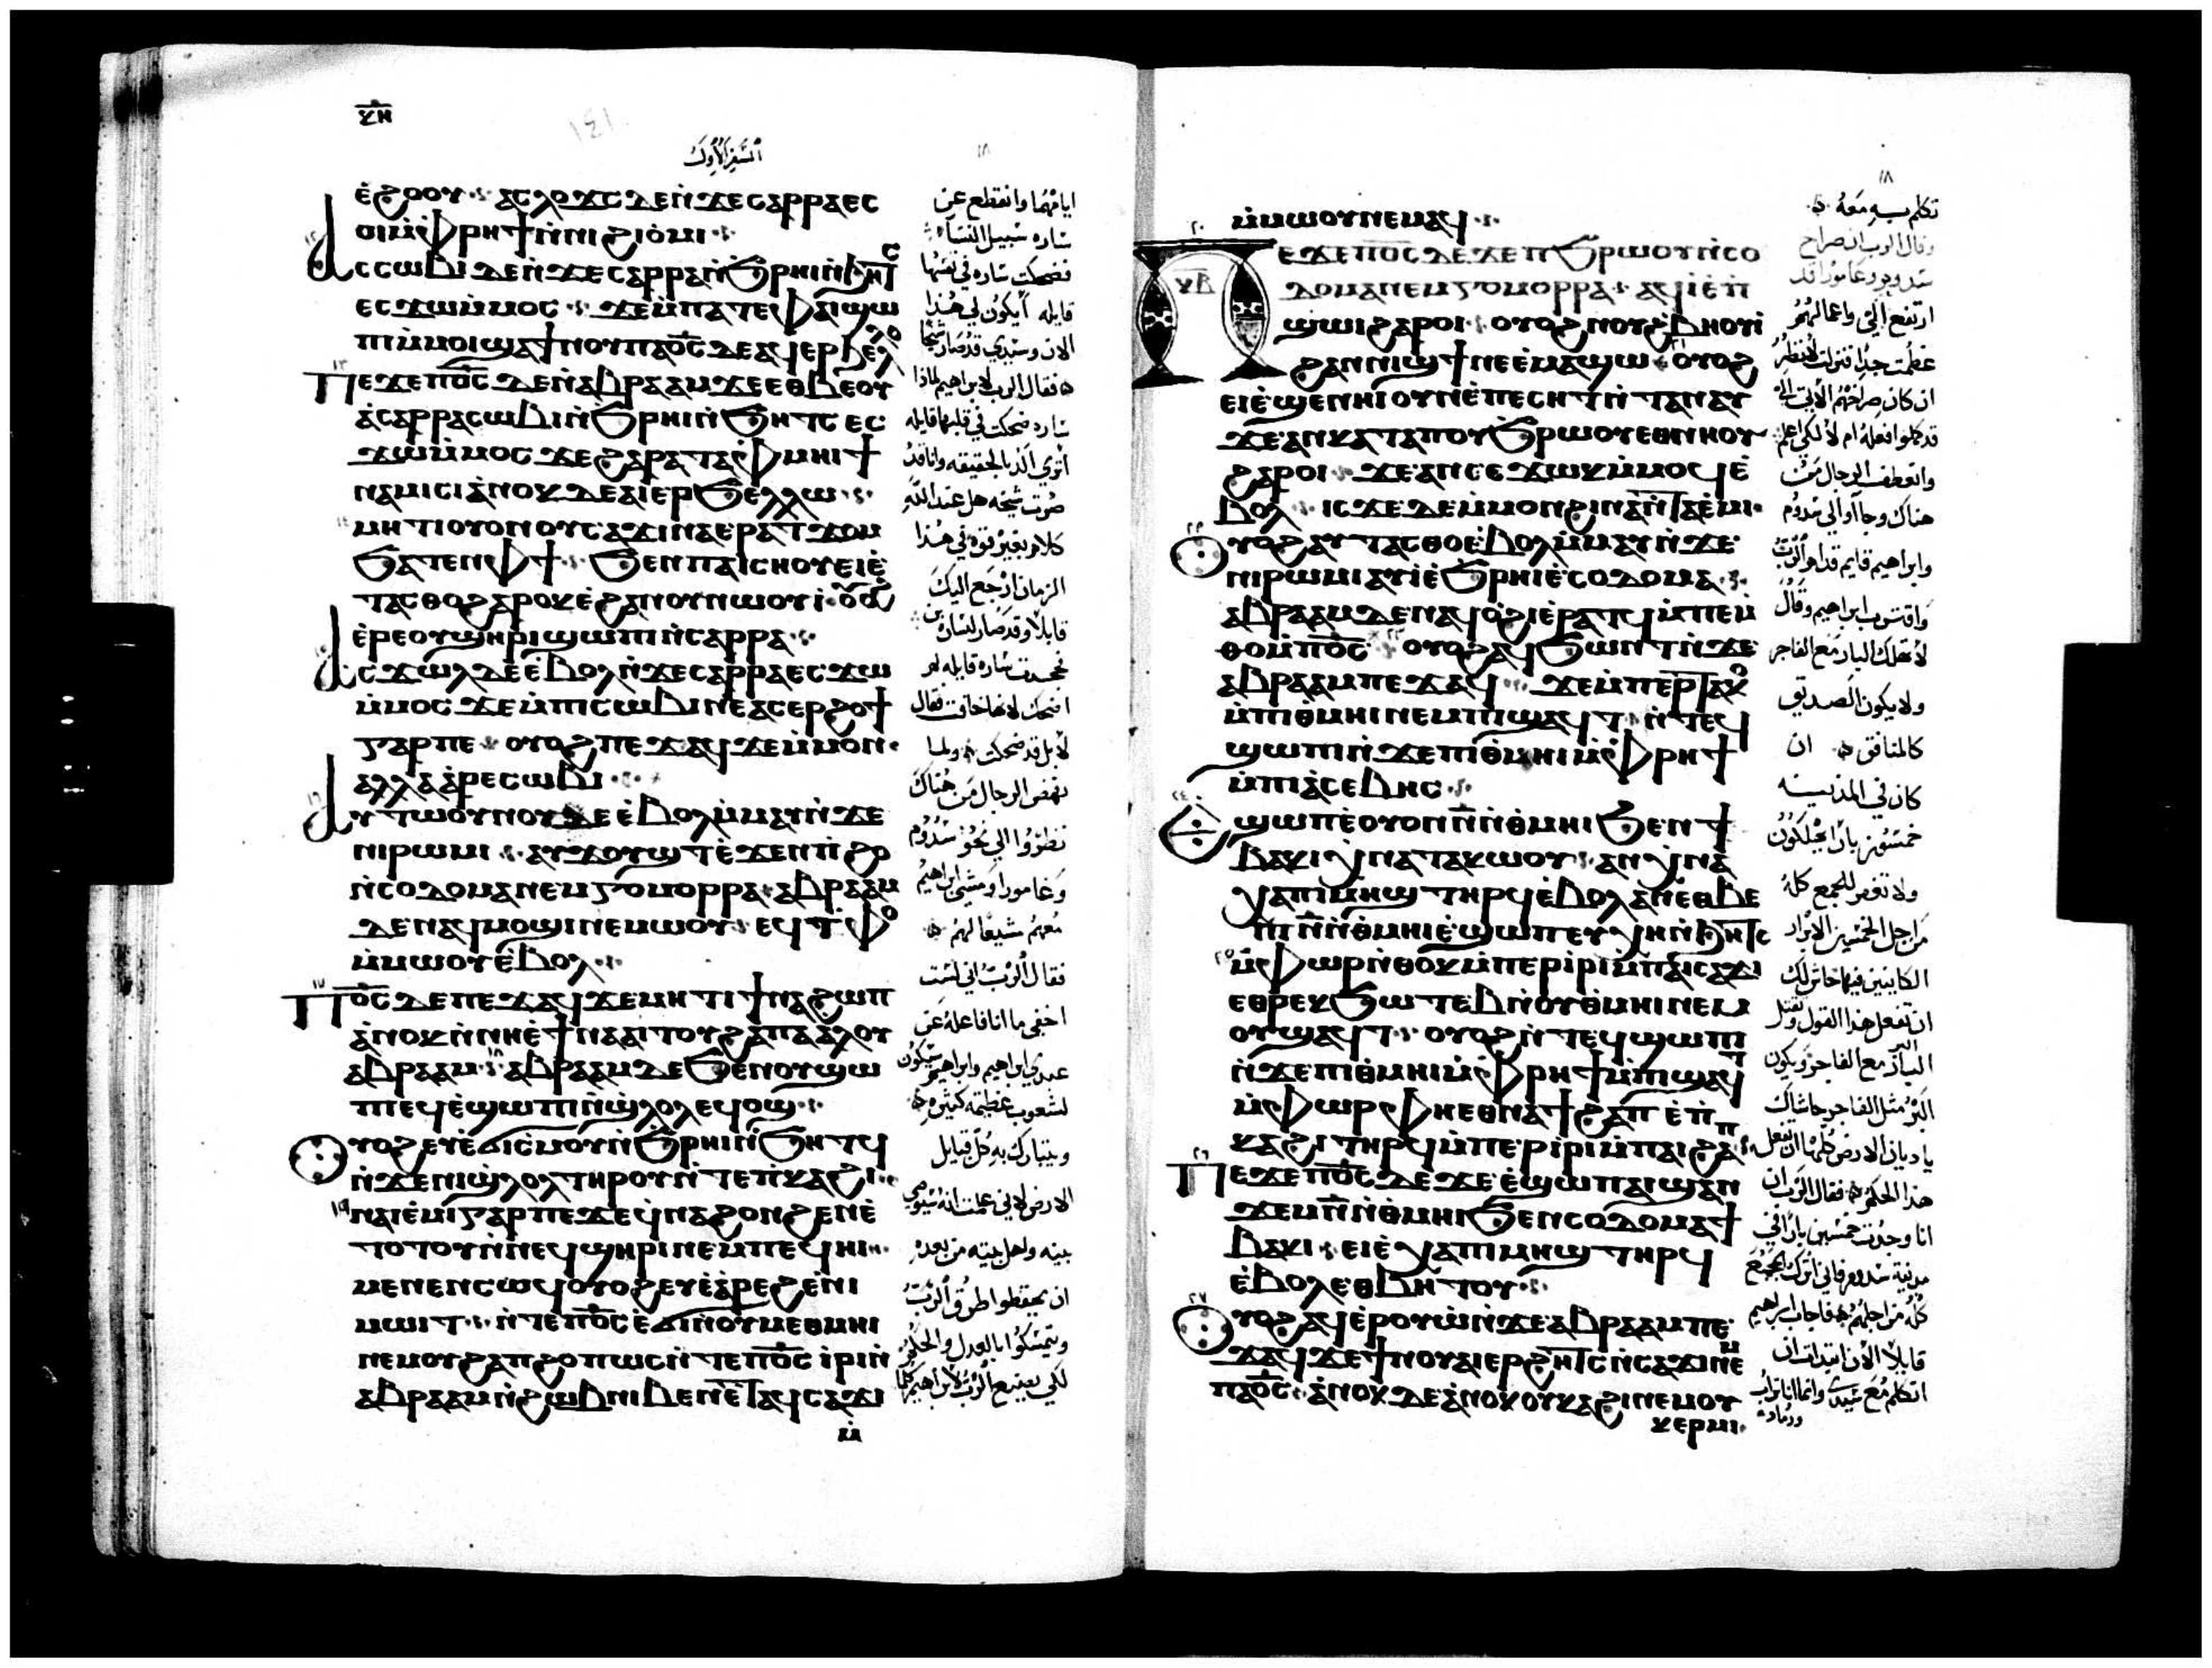 ⲕⲏ
السفر الاول
ⲉ̀ϩⲟⲟⲩ ⲁⲥⲗⲟϫⲥ ⲇⲉ ⲛ̀ϫⲉ ⲥⲁⲣⲣⲁ ⲉⲥ
ⲟⲓ ⲙ̀ⲫⲣⲏϯ ⲛ̀ⲛⲓϩⲓⲟ̀ⲙⲓ
ⲁⲥⲥⲱⲃⲓ ⲇⲉ ⲛ̀ϫⲉ ⲥⲁⲣⲣⲁ ⲛ̀ϧⲣⲏⲓ ⲛ̀ϧⲏⲧⲥ
ⲉⲥϫⲱ ⲙ̀ⲙⲟⲥ ϫⲉ ⲙ̀ⲡⲁⲧⲉ ⲫⲁⲓ ϣⲱ
ⲡⲓ ⲙ̀ⲙⲟⲓ ϣⲁ ϯⲛⲟⲩ ⲡⲁⲟ̅ⲥ̅ ⲇⲉ ⲁϥⲉⲣϧⲉⲗⲗⲟ
ⲡⲉϫⲉ ⲡⲟ̅ⲥ̅ ⲇⲉ ⲛ̀ⲁⲃⲣⲁⲁⲙ ϫⲉ ⲉⲑⲃⲉ ⲟⲩ
ⲁ̀ ⲥⲁⲣⲣⲁ ⲥⲱⲃⲓ ⲛ̀ϧⲣⲏⲓ ⲛ̀ϧⲏⲧⲥ ⲉⲥ
ϫⲱ ⲙ̀ⲙⲟⲥ ϫⲉ ϩⲁⲣⲁ ⲧⲁⲫⲙⲏⲓ ϯ
ⲛⲁⲙⲓⲥⲓ ⲁ̀ⲛⲟⲕ ⲇⲉ ⲁⲓⲉⲣϧⲉⲗⲗⲱ
ⲙⲏⲧⲓ ⲟⲩⲟⲛ ⲟⲩⲥⲁϫⲓ ⲛⲁⲉⲣⲁⲧϫⲟⲙ
ϧⲁⲧⲉⲛ ⲫϯ ϧⲉⲛ ⲡⲁⲓⲥⲛⲟⲩ ⲉⲓⲉ̀
ⲧⲁⲥⲑⲟ ϩⲁⲣⲟⲕ ⲉ̀ϩⲁⲛⲟⲩⲛⲱⲟⲩⲓ ⲟⲩⲟϩ
ⲉ̀ⲣⲉ ⲟⲩϣⲏⲣⲓ ϣⲱⲡⲓ ⲛ̀ⲥⲁⲣⲣⲁ
ⲁⲥϫⲱⲗ ⲇⲉ ⲉ̀ⲃⲟⲗ ⲛ̀ϫⲉ ⲥⲁⲣⲣⲁ ⲉⲥϫⲱ
ⲙ̀ⲙⲟⲥ ϫⲉ ⲙ̀ⲡⲓⲥⲱⲃⲓ ⲛⲉ ⲁⲥⲉⲣϩⲟϯ
ⲅⲁⲣ ⲡⲉ ⲟⲩⲟϩ ⲡⲉϫⲁϥ ϫⲉ ⲙ̀ⲙⲟⲛ
ⲁⲗⲗⲁ ⲁ̀ⲣⲉⲥⲱⲃⲓ
ⲁⲩⲧⲱⲟⲩⲛⲟⲩ ⲇⲉ ⲉ̀ⲃⲟⲗ ⲙ̀ⲙⲁⲩ ⲛ̀ϫⲉ
ⲛⲓⲣⲱⲙⲓ ⲁⲩϫⲟⲩϣⲧ ⲉ̀ϫⲉⲛ ⲡ̀ϩⲟ
ⲛ̀ⲥⲟⲇⲟⲙⲁ ⲛⲉⲙ ⲅⲟⲙⲟⲣⲣⲁ ⲁⲃⲣⲁⲁⲙ
ⲇⲉ ⲛⲁϥⲙⲟϣⲓ ⲛⲉⲙⲱⲟⲩ ⲉϥⲧⲫⲟ
ⲙ̀ⲙⲱⲟⲩ ⲉ̀ⲃⲟⲗ
ⲡⲟ̅ⲥ̅ ⲇⲉ ⲡⲉϫⲁϥ ϫⲉ ⲙⲏⲧⲓ ϯⲛⲁϩⲱⲡ
ⲁ̀ⲛⲟⲕ ⲛ̀ⲛⲏ ⲉ̀ϯⲛⲁⲁⲓⲧⲟⲩ ϩⲁ ⲡⲁⲁⲗⲟⲩ
ⲁⲃⲣⲁⲁⲙ ⲁⲃⲣⲁⲁⲙ ⲇⲉ ϧⲉⲛ ⲟⲩϣⲱ
ⲡⲓ ⲉϥⲉ̀ϣⲱⲡⲓ ⲛ̀ϣ̀ⲗⲟⲗ ⲉϥⲟϣ
ⲟⲩⲟϩ ⲉⲩⲉ̀ϭⲓⲥⲙⲟⲩ ⲛ̀ϧⲣⲏⲓ ⲛ̀ϧⲏⲧϥ
ⲛ̀ϫⲉ ⲛⲓϣ̀ⲗⲟⲗ ⲧⲏⲣⲟⲩ ⲛ̀ⲧⲉ ⲡ̀ⲕⲁϩⲓ
ⲛⲁⲓⲉ̀ⲙⲓ ⲅⲁⲣ ⲡⲉ ϫⲉ ϥⲛⲁϩⲟⲛϩⲉⲛ ⲉ̀
ⲧⲟⲧⲟⲩ ⲛ̀ⲛⲉϥϣⲏⲣⲓ ⲛⲉⲙ ⲡⲉϥⲏⲓ
ⲙⲉⲛⲉⲛⲥⲱϥ ⲟⲩⲟϩ ⲉⲩⲉ̀ⲁ̀ⲣⲉϩ ⲉ̀ⲛⲓ
ⲙⲱⲓⲧ ⲛ̀ⲧⲉ ⲡⲟ̅ⲥ̅ ⲉ̀ϭⲓ ⲛ̀ⲟⲩⲙⲉⲑⲙⲏⲓ
ⲛⲉⲙ ⲟⲩϩⲁⲡ ϩⲟⲡⲱⲥ ⲛ̀ⲧⲉ ⲡⲟ̅ⲥ̅ ⲓ̀ⲣⲓ ⲛ̀
ⲁⲃⲣⲁⲁⲙ ⲛ̀ϩⲱⲃ ⲛⲓⲃⲉⲛ ⲉ̀ⲧⲁϥⲥⲁϫⲓ
ⲙ̀
ايامهما وانقطع عن
ساره سبيل النساء
فضحكت ساره في نفسها
قايله أيكون لي هذا
الان وسيدي قد صار شيخا
فقال الرب لابراهيم لماذا
ساره ضحكت في قلبها قايله
اتري الد بالحقيقه وانا قد
صرت شيخه هل عند الله
كلام بغير قوه في هذا
الزمان ارجع اليك
قابلا وقد صار لساره ابن
فجحدت ساره قايله لم
اضحك لانها خافت فقال
لا بل قد ضحكت ولما
نهض الرجال من هناك
نظروا الي نحو سدوم
وغامورا ومشي ابراهيم
معهم مشيعا لهم
فقال الرب اني لست
اخفي ما انا فاعله عن
عبدي ابراهيم وابراهيم سيكون
لشعوب عظيمه كثيره
ويتبارك به كل قبايل
الارض لاني علمت انه سيوصي
بنيه واهل بيته من بعده
ان يحفظوا طرق الرب
ويتمسكوا بالعدل والحكم
لكي يصنع الرب لابراهيم كلما
ⲙ̀ⲙⲱⲟⲩ ⲛⲉⲙⲁϥ
ⲡⲉϫⲉ ⲡⲟ̅ⲥ̅ ⲇⲉ ϫⲉ ⲡ̀ϧⲣⲱⲟⲩ ⲛ̀ⲥⲟ
ⲇⲟⲙⲁ ⲛⲉⲙ ⲅⲟⲙⲟⲣⲣⲁ ⲁϥⲓ̀ ⲉ̀ⲡ̀
ϣⲱⲓ ϩⲁⲣⲟⲓ ⲟⲩⲟϩ ⲛⲟⲩϩ̀ⲃⲏⲟⲩⲓ̀
ϩⲁⲛⲛⲓϣϯ ⲛⲉ ⲉ̀ⲙⲁϣⲱ ⲟⲩⲟϩ
ⲉⲓⲉ̀ϣⲉⲛⲏⲓ ⲟⲩⲛ ⲉ̀ⲡⲉⲥⲏⲧ ⲛ̀ⲧⲁⲛⲁⲩ
ϫⲉ ⲁⲛ ⲕⲁⲧⲁ ⲡⲟⲩϧⲣⲱⲟⲩ ⲉⲑⲛⲏⲟⲩ
ϩⲁⲣⲟⲓ ϫⲉ ⲁⲛ ⲥⲉϫⲱⲕ ⲙ̀ⲙⲟϥ ⲉ̀
ⲃⲟⲗ ⲓⲥϫⲉ ⲇⲉ ⲙ̀ⲙⲟⲛ ϩⲓⲛⲁ ⲛ̀ⲧⲁⲉ̀ⲙⲓ
ⲟⲩⲟϩ ⲁⲩⲧⲁⲥⲑⲟ ⲉ̀ⲃⲟⲗ ⲙ̀ⲙⲁⲩ ⲛ̀ϫⲉ
ⲛⲓⲣⲱⲙⲓ ⲁⲩⲓ̀ ⲉ̀ϧⲣⲏⲓ ⲉ̀ⲥⲟⲇⲟⲙⲁ
ⲁⲃⲣⲁⲁⲙ ⲇⲉ ⲛⲁϥⲟ̀ϩⲓ ⲉ̀ⲣⲁⲧϥ ⲙ̀ⲡⲉⲙ̀
ⲑⲟ ⲙ̀ⲡⲟ̅ⲥ̅ ⲟⲩⲟϩ ⲁϥϧⲱⲛⲧ ⲛ̀ϫⲉ
ⲁⲃⲣⲁⲁⲙ ⲡⲉϫⲁϥ ϫⲉ ⲙ̀ⲡⲉⲣⲧⲁⲕⲟ
ⲙ̀ⲡⲓⲑⲙⲏⲓ ⲛⲉⲙ ⲡⲓϣⲁϥⲧ ⲛ̀ⲧⲉϥ
ϣⲱⲡⲓ ⲛ̀ϫⲉ ⲡⲓⲑⲙⲏⲓ ⲙ̀ⲫⲣⲏϯ
ⲙ̀ⲡⲓⲁⲥⲉⲃⲏⲥ
ⲁⲩϣⲱⲡ ⲉ̀ⲟⲩⲟⲛ ⲛ̅ ⲛ̀ⲑⲙⲏⲓ ϧⲉⲛ ϯ
ⲃⲁⲕⲓ ⲭⲛⲁⲧⲁⲕⲱⲟⲩ ⲁⲛ ⲭⲛⲁ
ⲭⲁ ⲡⲓⲙⲏϣ ⲧⲏⲣϥ ⲉ̀ⲃⲟⲗ ⲁⲛ ⲉⲑⲃⲉ
ⲡⲓⲛ̅ ⲛ̀ⲑⲙⲏⲓ ⲉ̀ϣⲱⲡ ⲉⲩⲭⲏ ⲛ̀ϧⲏⲧⲥ
ⲙ̀ⲫⲱⲣ ⲛ̀ⲑⲟⲕ ⲙ̀ⲡⲉⲣⲓⲣⲓ ⲙ̀ⲡⲁⲓⲥⲁϫⲓ
ⲉⲑⲣⲉⲕϧⲱⲧⲉⲃ ⲛ̀ⲟⲩⲑⲙⲏⲓ ⲛⲉⲙ
ⲟⲩϣⲁϥⲧ ⲟⲩⲟϩ ⲛ̀ⲧⲉϥϣⲱⲡⲓ
ⲛ̀ϫⲉ ⲡⲓⲑⲙⲏⲓ ⲙ̀ⲫⲣⲏϯ ⲙ̀ⲡⲓϣⲁϥⲧ
ⲙ̀ⲫⲱⲣ ⲫⲏ ⲉⲑⲛⲁϯϩⲁⲡ ⲉ̀ⲡ̀
ⲕⲁϩⲓ ⲧⲏⲣϥ ⲙ̀ⲡⲉⲣⲓⲣⲓ ⲙ̀ⲡⲁⲓϩⲁⲡ
ⲡⲉϫⲉ ⲡⲟ̅ⲥ̅ ⲇⲉ ϫⲉ ⲉ̀ϣⲱⲡ ⲁⲓϣⲁⲛ
ϫⲉⲙ ⲛ̅ ⲛ̀ⲑⲙⲏⲓ ϧⲉⲛ ⲥⲟⲇⲟⲙⲁ ϯ
ⲃⲁⲕⲓ ⲉⲓⲉ̀ⲭⲁ ⲡⲓⲙⲏϣ ⲧⲏⲣϥ
ⲉ̀ⲃⲟⲗ ⲉⲑⲃⲏⲧⲟⲩ
ⲟⲩⲟϩ ⲁϥⲉ̀ⲣⲟⲩⲱ̀ ⲛ̀ϫⲉ ⲁⲃⲣⲁⲁⲙ ⲡⲉ
ϫⲁϥ ϫⲉ ϯⲛⲟⲩ ⲁⲓⲉⲣϩⲏⲧⲥ ⲛ̀ⲥⲁϫⲓ ⲛⲉⲙ
ⲡⲁⲟ̅ⲥ̅ ⲁ̀ⲛⲟⲕ ⲇⲉ ⲁ̀ⲛⲟⲕ ⲟⲩⲕⲁϩⲓ ⲛⲉⲙ ⲟⲩ
ⲕⲉⲣⲙⲓ
تكلم به معه
وقال الرب ان صراخ
سدوم وغامورا قد
ارتفع الي واعمالهم
عظمت جدا فنزلت لانظر
ان كان صراخهم الاتي الي
قد كملوا فعله ام لا لكي اعلم
وانعطف الرجال من
هناك وجاوا الي سدوم
وابراهيم قايم قدام الرب
واقترب ابراهيم وقال
لا تهلك البار مع الفاجر
ولا يكون الصديق
كالمنافق ان
كان في المدينه
خمسون بارا يهلكون
ولا تغفر للجمع كله
من اجل الخمسين الابرار
الكاينين فيها حاش لك
ان تفعل هذا القول وتقتل
البار مع الفاجر ويكون
البر مثل الفاجر حاشاك
يا ديان الارض كلها ان تفعل
هذا الحكم فقال الرب ان
انا وجدت خمسين بارا في
مدينة سدوم فاني اترك الجمع
كله من اجلهم فاجاب ابراهيم
قايلا الان ابتدات ان
اتكلم مع سيدي وانما انا تراب
ورماد